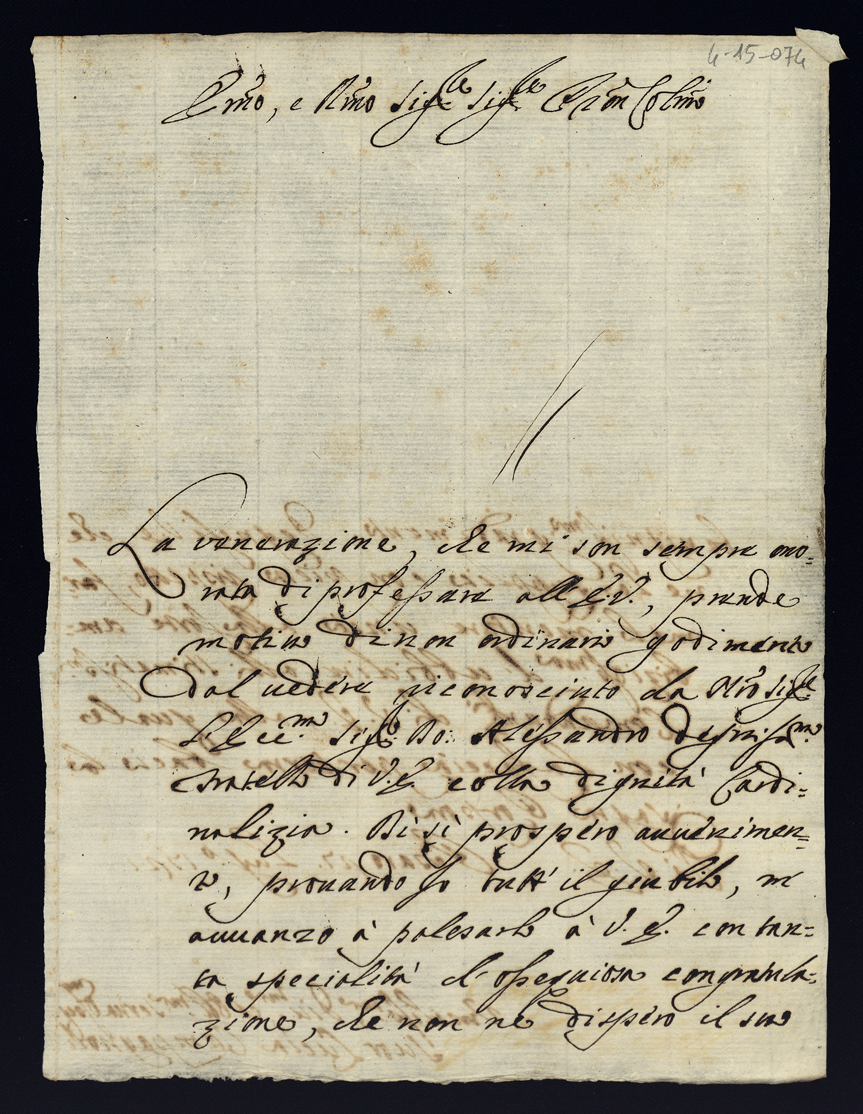 4-15-074
Emo, e Rmo Sigre Sigre Pron Colmo
La venerazione, che mi son sempre ono-
rata di professare all'E.V., prende
motivo di non ordinario godimento
dal vedere riconosciuto da Nro Sigre
l'Ecc.mo Sigr Do: Alessandro degniss.mo
fratello di V.E. colla dignità Cardi-
nalizia. Di sì prospero avvenimen-
to, provando io tutt'il giubilo, m'
avvanzo à palesarlo à V.E. con tan-
ta specialità d'ossequiosa congratula-
zione, che non ne dispero il suo